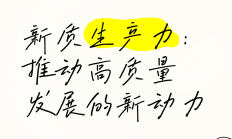 新质生产力：
推动高质量
发展的新动力